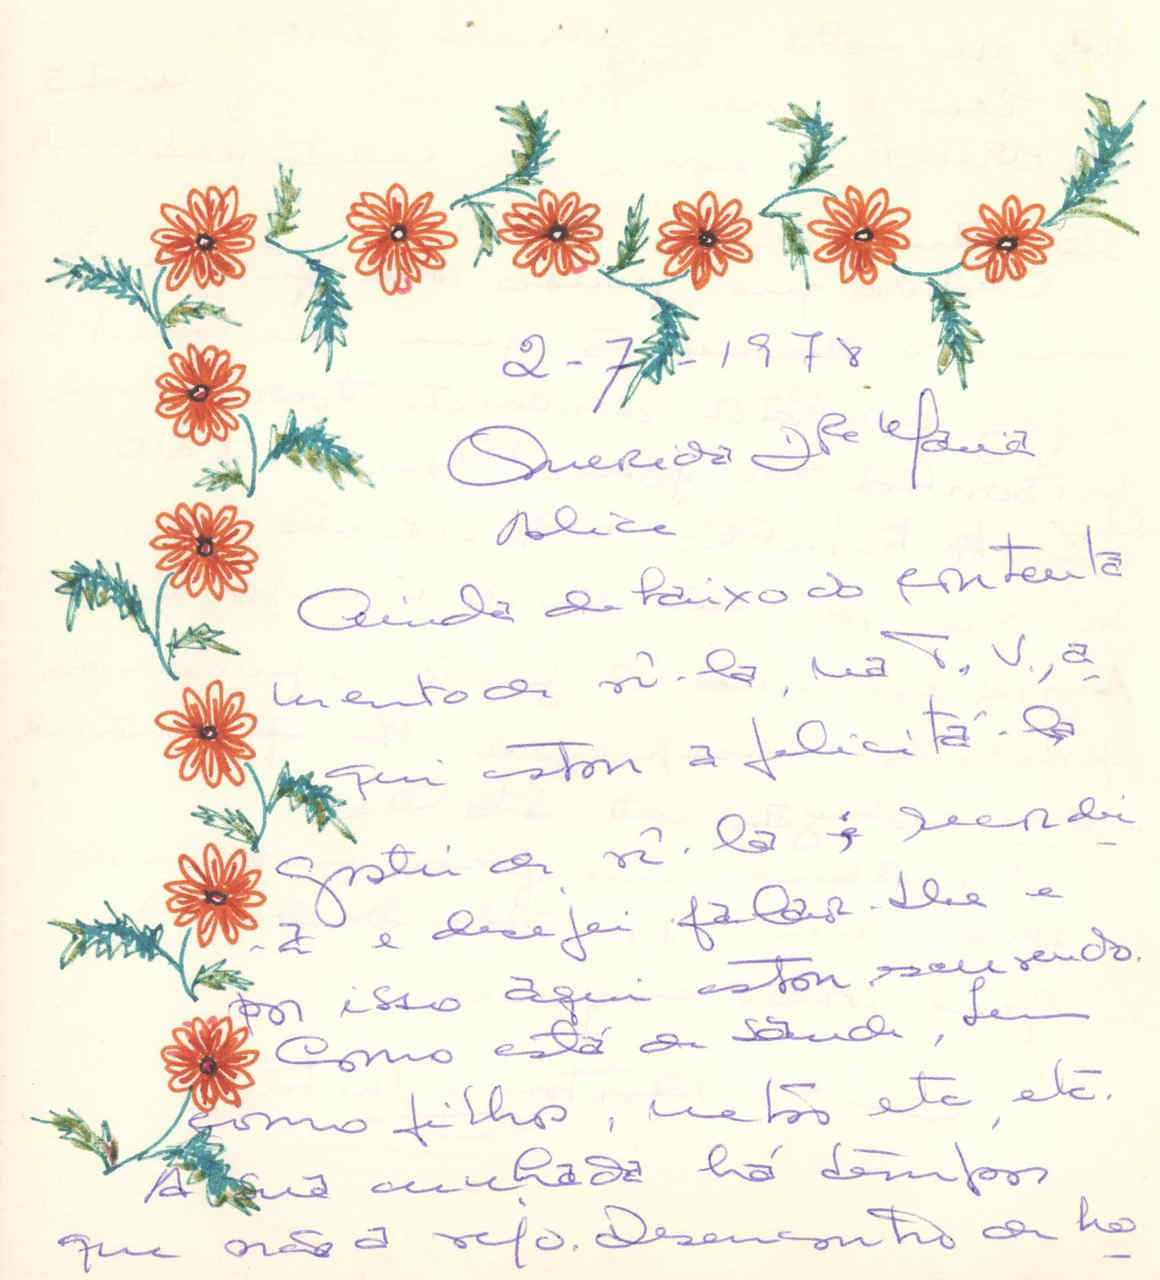 2-7-1978
Querida Drª Maria
Alice
Ainda debaixo do contenta
mento de vê-la, na T.V., a-
qui estou a felicitá-la
gostei de vê-la e recordei
-a e desejei falar-lhe e
por isso aqui estou escrevendo.
Como está de saúde, bem
como filhos, netos etc, etc.
A sua cunhada há tempos
que não a vejo. Desencontro de ho-